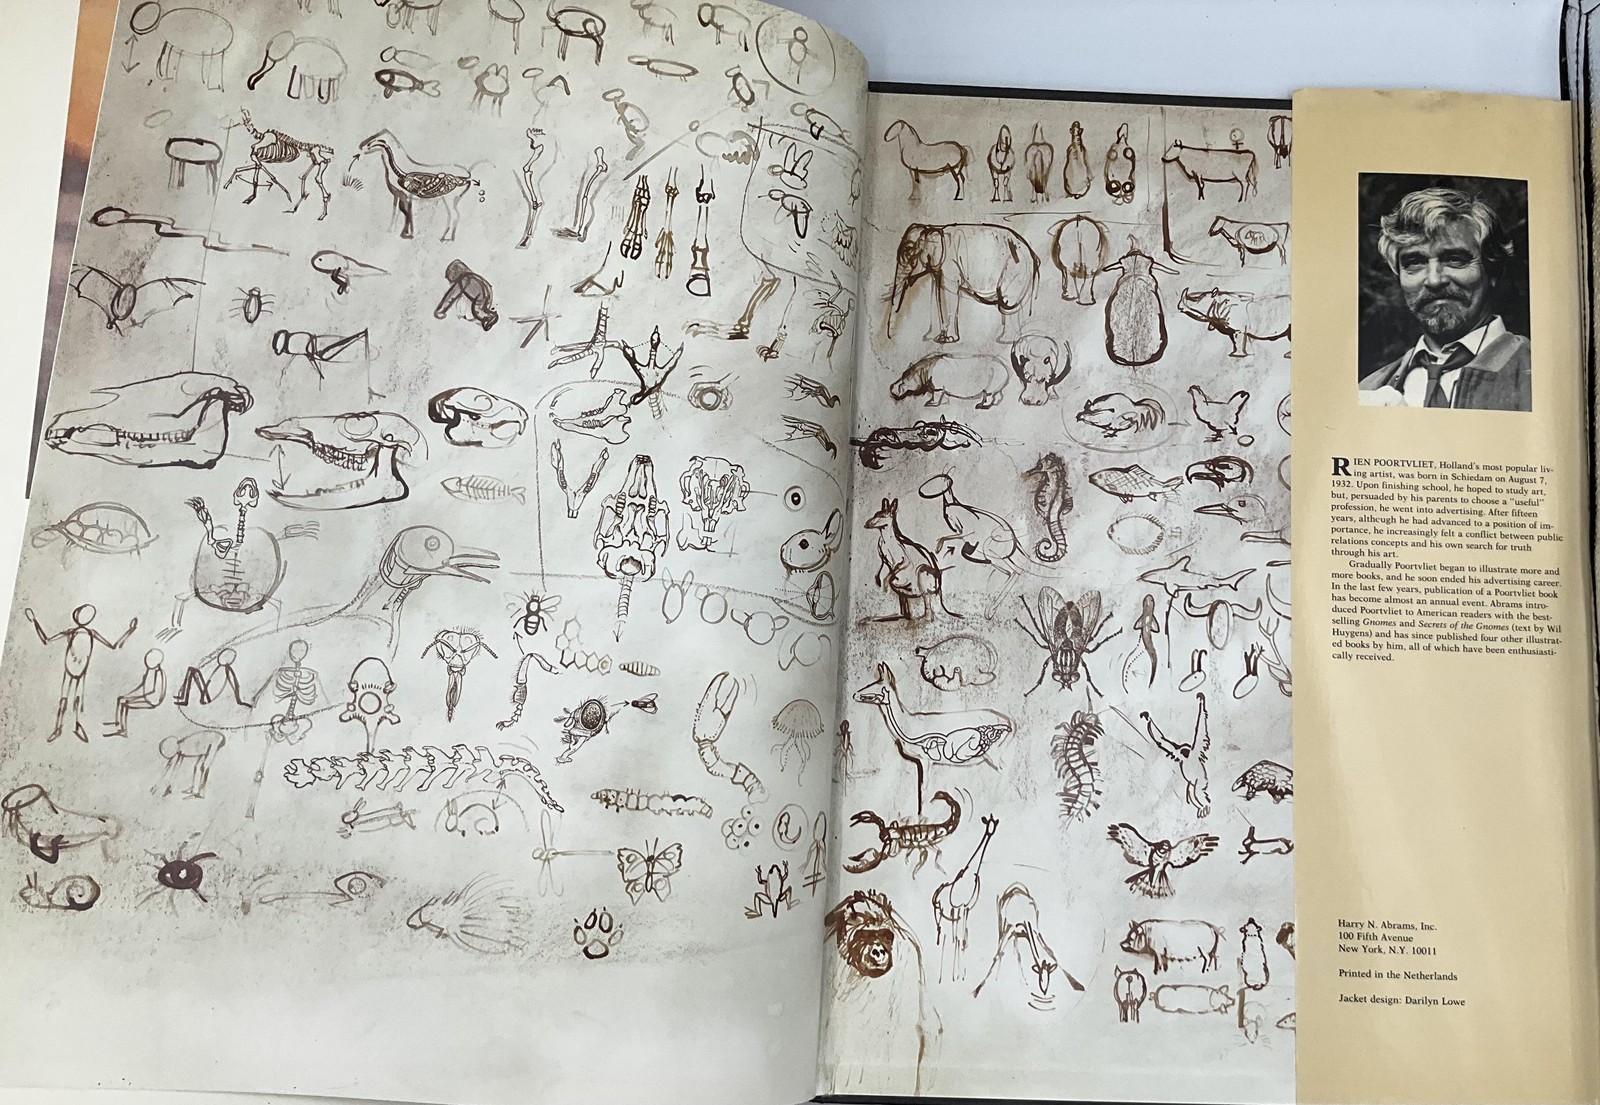 RIEN POORTVLIET, Holland's most popular liv-
ing artist, was born in Schiedam on August 7,
1932. Upon finishing school, he hoped to study art,
but, persuaded by his parents to choose a "useful"
profession, he went into advertising. After fifteen
years, although he had advanced to a position of im-
portance, he increasingly felt a conflict between public
relations concepts and his own search for truth
through his art.
Gradually Poortvliet began to illustrate more and
more books, and he soon ended his advertising career.
In the last few years, publication of a Poortvliet book
has become almost an annual event. Abrams intro-
duced Poortvliet to American readers with the best-
selling Gnomes and Secrets of the Gnomes (text by Wil
Huygens) and has since published four other illustrat-
ed books by him, all of which have been enthusiasti-
cally received.
Harry N. Abrams, Inc.
100 Fifth Avenue
New York, N.Y. 10011
Printed in the Netherlands
Jacket design: Darilyn Lowe